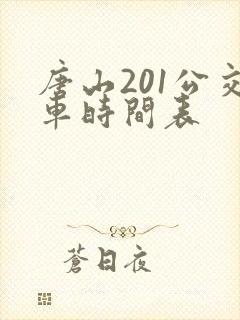 唐山201公交
車時間表
蒼日夜